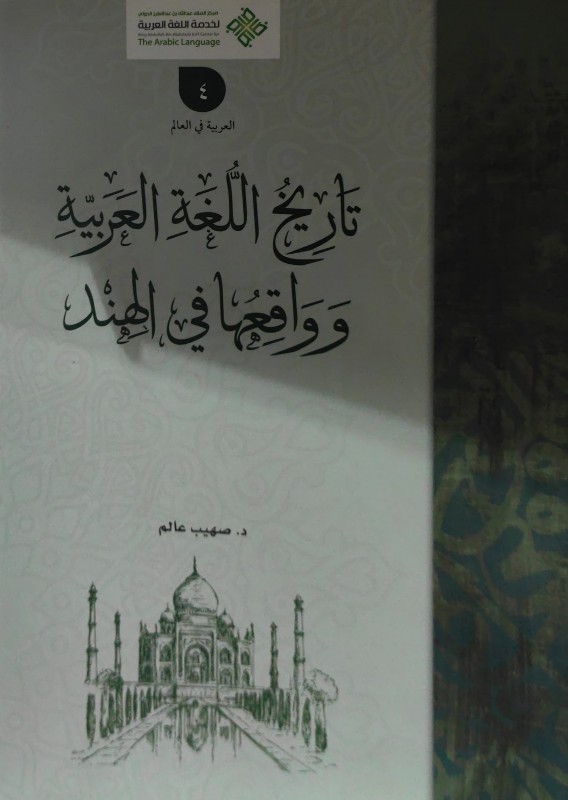 مركز الملك عبدالله بن عبدالعزيز الدولي
لخدمة اللغة العربية
King Abdullah Bin Abdulaziz Int'l Center for
The Arabic Language
٤
العربية في العالم
تَارِيخُ اللُّغَةِ العَرَبيّةِ
وَوَاقِعُها في الهِنْد
د. صهيب عالم